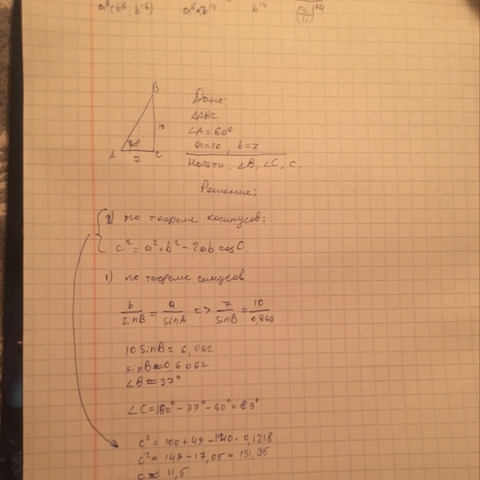 B
10
60°
A 7 C
Дано:
△ABC
∠A=60°
a=10, b=7
Найти: ∠B, ∠C, c.
Решение:
2) по теореме косинусов:
c² = a² + b² - 2ab cosC
1) по теореме синусов
b/sinB = a/sinA => 7/sinB = 10/0,866
10 sinB = 6,062
sinB ≈ 0,6062
∠B ≈ 37°
∠C = 180° - 37° - 60° = 83°
c² = 100 + 49 - 140 · 0,1218
c² = 149 - 17,05 = 131,95
c ≈ 11,5